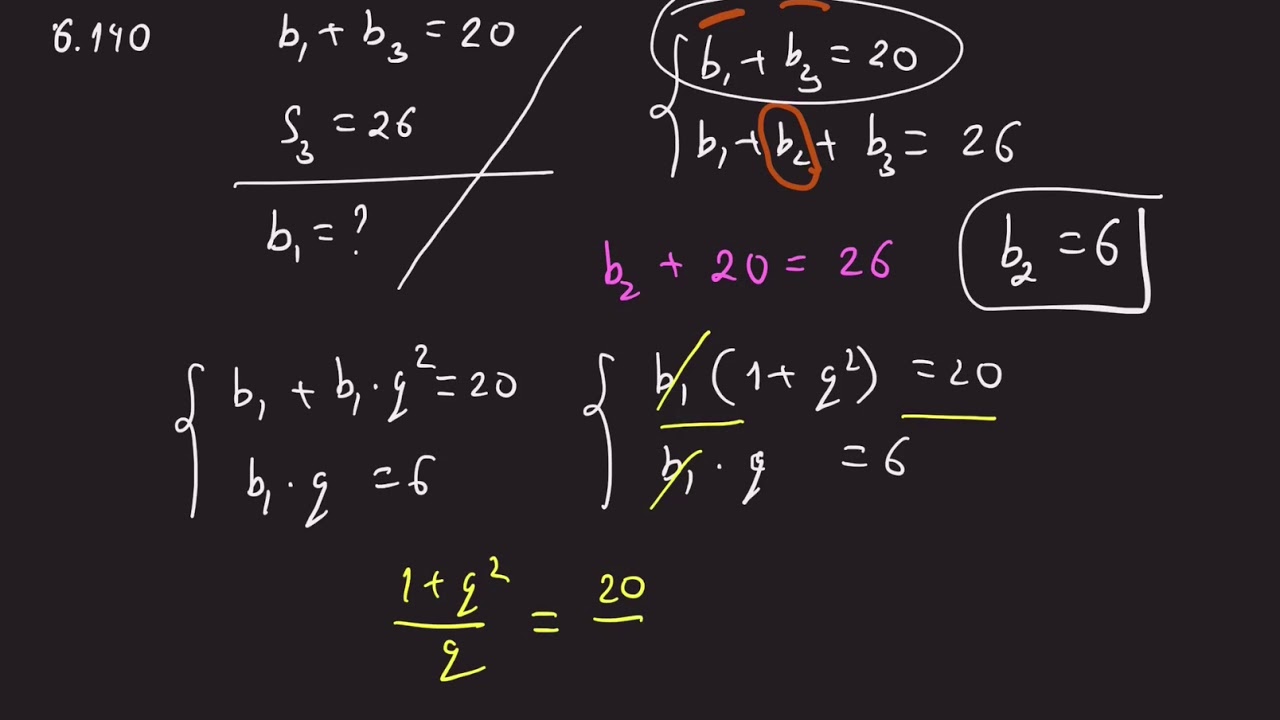 6.140
b₁ + b₃ = 20
S₃ = 26
b₁ = ?
b₁ + b₃ = 20
b₁ + b₂ + b₃ = 26
b₂ + 20 = 26
b₂ = 6
b₁ + b₁ · q² = 20
b₁ · q = 6
b₁ (1 + q²) = 20
b₁ · q = 6
1 + q²
q
= 20